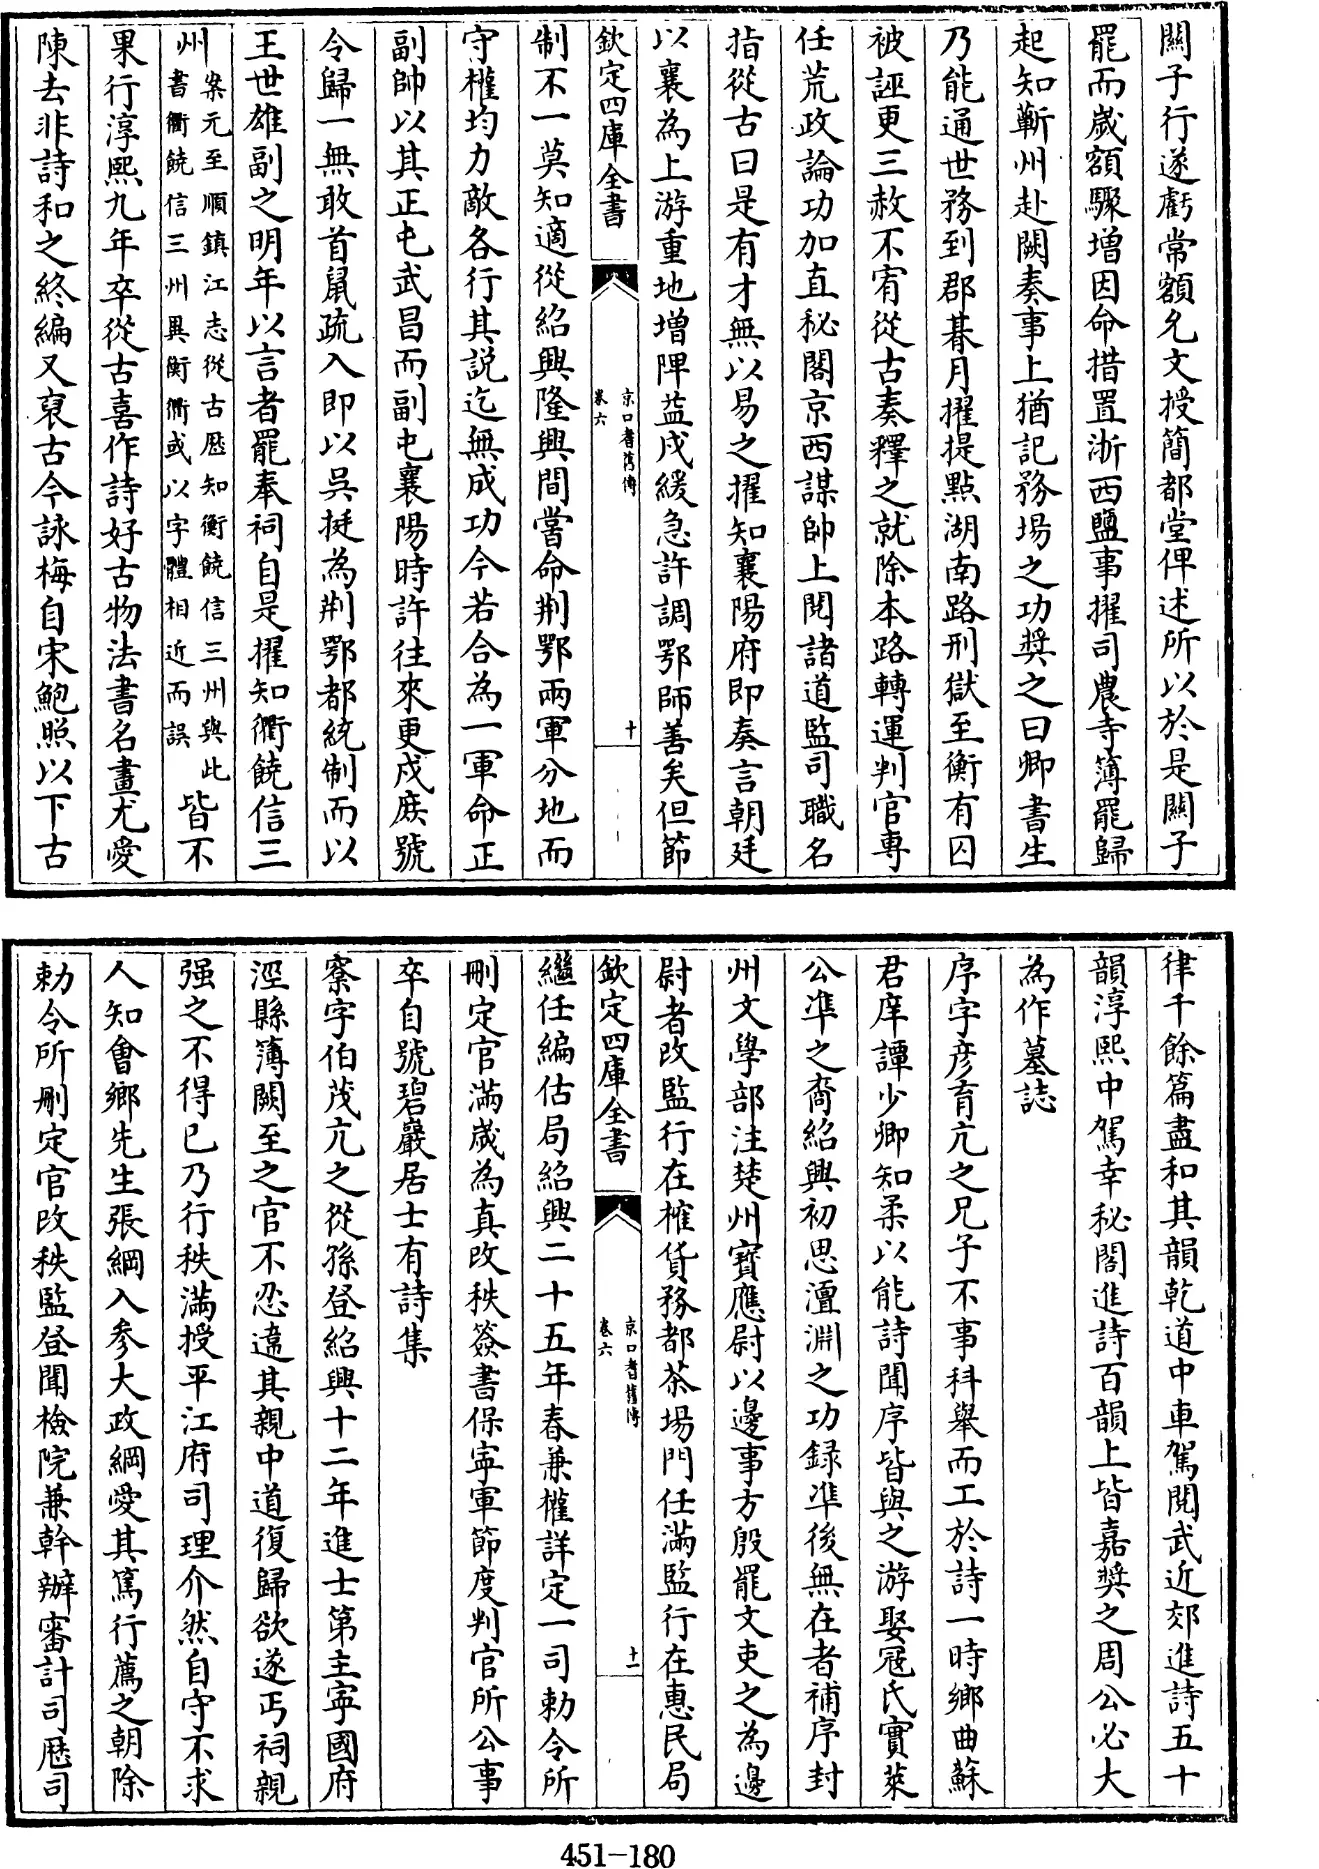 關子行遂虧常額允文授簡都堂俾述所以於是關子
罷而歲額驟增因命措置浙西鹽事擢司農寺簿罷歸
起知蘄州赴闕奏事上猶記務場之功奬之曰卿書生
乃能通世務到郡朞月擢提點湖南路刑獄至衡有囚
被誣更三赦不宥從古奏釋之就除本路轉運判官專
任荒政論功加直秘閣京西謀帥上閱諸道監司職名
指從古曰是有才無以易之擢知襄陽府即奏言朝廷
以襄為上游重地增陴益戍緩急許調鄂師善矣但節
欽定四庫全書
京口耆舊傳
卷六
十
制不一莫知適從紹興隆興間嘗命荆鄂兩軍分地而
守權均力敵各行其説迄無成功今若合為一軍命正
副帥以其正屯武昌而副屯襄陽時許往來更戍庶號
令歸一無敢首鼠疏入即以吳挺為荆鄂都統制而以
王世雄副之明年以言者罷奉祠自是擢知衢饒信三
州案元至順鎮江志從古歷知衡饒信三州與此
書衢饒信三州異衡衢或以字體相近而誤皆不
果行淳熙九年卒從古喜作詩好古物法書名畫尤愛
陳去非詩和之終編又裒古今詠梅自宋鮑照以下古
律千餘篇盡和其韻乾道中車駕閱武近郊進詩五十
韻淳熙中駕幸秘閣進詩百韻上皆嘉奬之周公必大
為作墓誌
序字彦育亢之兄子不事科舉而工於詩一時鄉曲蘇
君庠譚少卿知柔以能詩聞序皆與之游娶冦氏實萊
公準之裔紹興初思澶淵之功録準後無在者補序封
州文學部注楚州寶應尉以邊事方殷罷文吏之為邊
尉者改監行在榷貨務都茶場門任滿監行在惠民局
欽定四庫全書
京口耆舊傳
卷六
十一
繼任編估局紹興二十五年春兼權詳定一司勅令所
刪定官滿歲為真改秩簽書保寧軍節度判官所公事
卒自號碧巖居士有詩集
寮字伯茂亢之從孫登紹興十二年進士第主寧國府
涇縣簿闕至之官不忍違其親中道復歸欲遂丐祠親
强之不得已乃行秩滿授平江府司理介然自守不求
人知會鄉先生張綱入參大政綱愛其篤行薦之朝除
勅令所刪定官改秩監登聞檢院兼幹辦審計司歷司
451-180